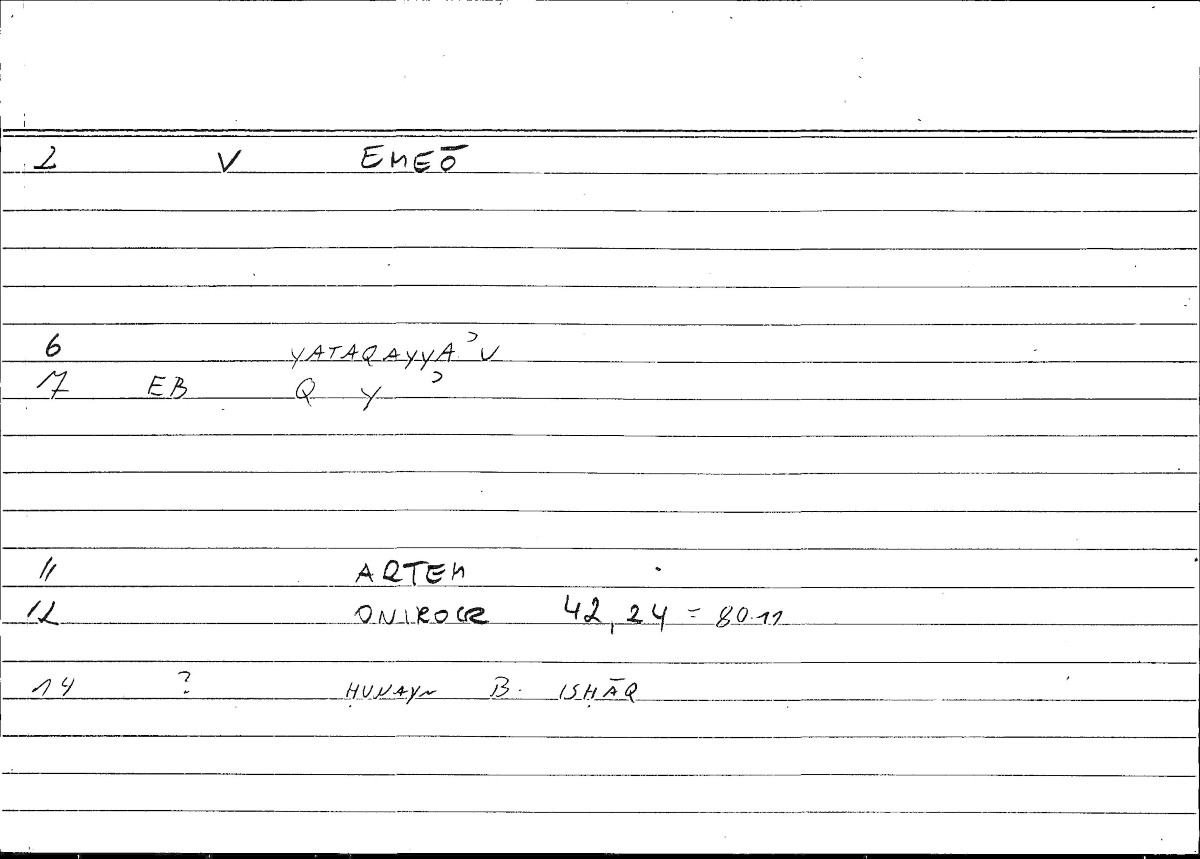 2 V EMEŌ
6 YATAQAYYAʾU
7 EB Q Y ʾ
11 ARTEM
12 ONIROCR 42,24 = 80.11
14 ? ḤUNAYN B. ISḤĀQ